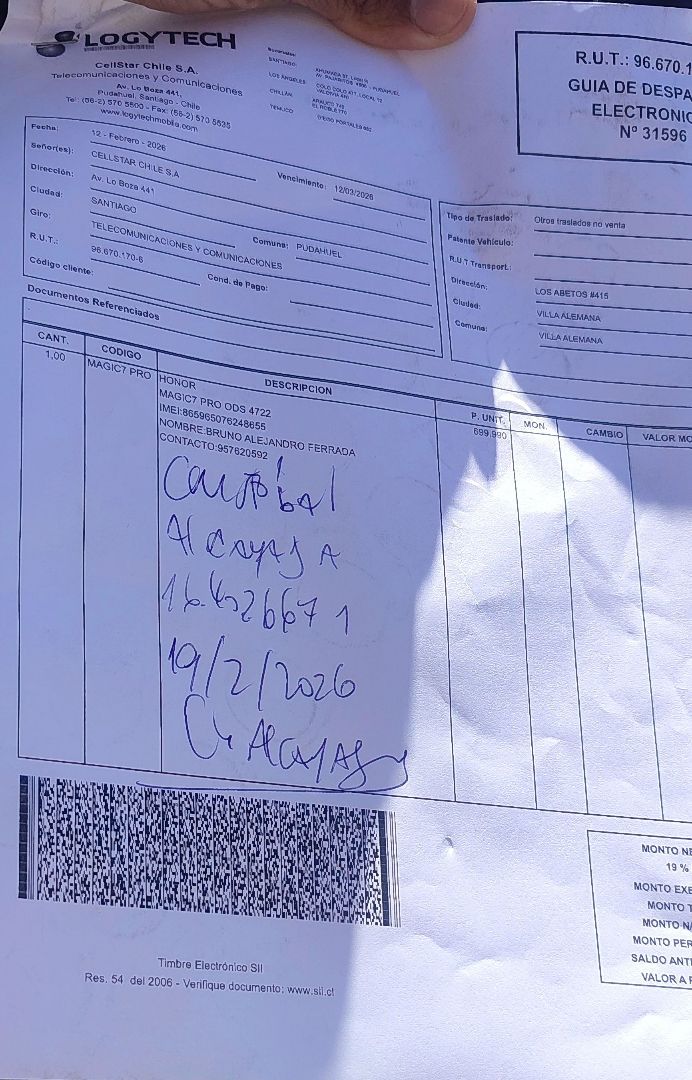 LOGYTECH
CellStar Chile S.A.
Telecomunicaciones y Comunicaciones
Av. Lo Boza 441,
Pudahuel, Santiago - Chile
Tel: (56-2) 570 5500 - Fax: (56-2) 570 5535
www.logytechmobile.com
Sucursales:
SANTIAGO:
LOS ANGELES
COLO COLO 411, LOCAL 12
CHILLÁN
TEMUCO
R.U.T.: 96.670.1
GUIA DE DESPA
ELECTRONIC
Nº 31596
Fecha: 12 - Febrero - 2026 Vencimiento: 12/03/2026
Señor(es): CELLSTAR CHILE S.A
Dirección: Av. Lo Boza 441
Ciudad: SANTIAGO Comuna: PUDAHUEL
Giro: TELECOMUNICACIONES Y COMUNICACIONES
R.U.T.: 96.670.170-6
Código cliente: Cond. de Pago:
Tipo de Traslado: Otros traslados no venta
Patente Vehículo:
R.U.T Transport.:
Dirección: LOS ABETOS #415
Ciudad: VILLA ALEMANA
Comuna: VILLA ALEMANA
Documentos Referenciados
CANT. CODIGO DESCRIPCION P. UNIT. MON. CAMBIO VALOR MO
1,00 MAGIC7 PRO HONOR 699.990
MAGIC7 PRO ODS 4722
IMEI:865965076248655
NOMBRE:BRUNO ALEJANDRO FERRADA
CONTACTO:957620592
Alcayaga
16.4526671
19/2/2026
Alcayaga
Timbre Electrónico SII
Res. 54 del 2006 - Verifique documento: www.sii.cl
MONTO NE
19 %
MONTO EXE
MONTO T
MONTO N
MONTO PER
SALDO ANT
VALOR A P